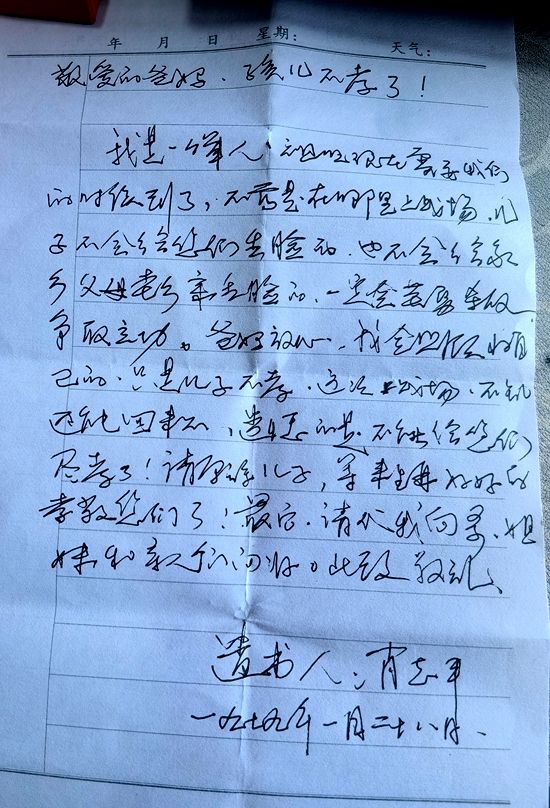 年 月 日 星期： 天气：
敬爱的爸妈、孩儿不孝了！
我是一个军人，祖国现在需要我们
的时候到了，不管是在哪里上战场，儿
子不会给您们丢脸的，也不会给家
乡父母老乡亲丢脸的，一定会英勇杀敌
争取立功。爸妈放心，我会照顾好自
己的，只是儿子不孝，这次上战场，不知
还能回来不，遗憾的是不能给您们
尽孝了！请原谅儿子，等来生再好好的
孝敬您们了！最后，请代我向哥、姐
妹和亲人们问好。此致敬礼、
遗书人：肖志平
一九七九年一月二十八日．